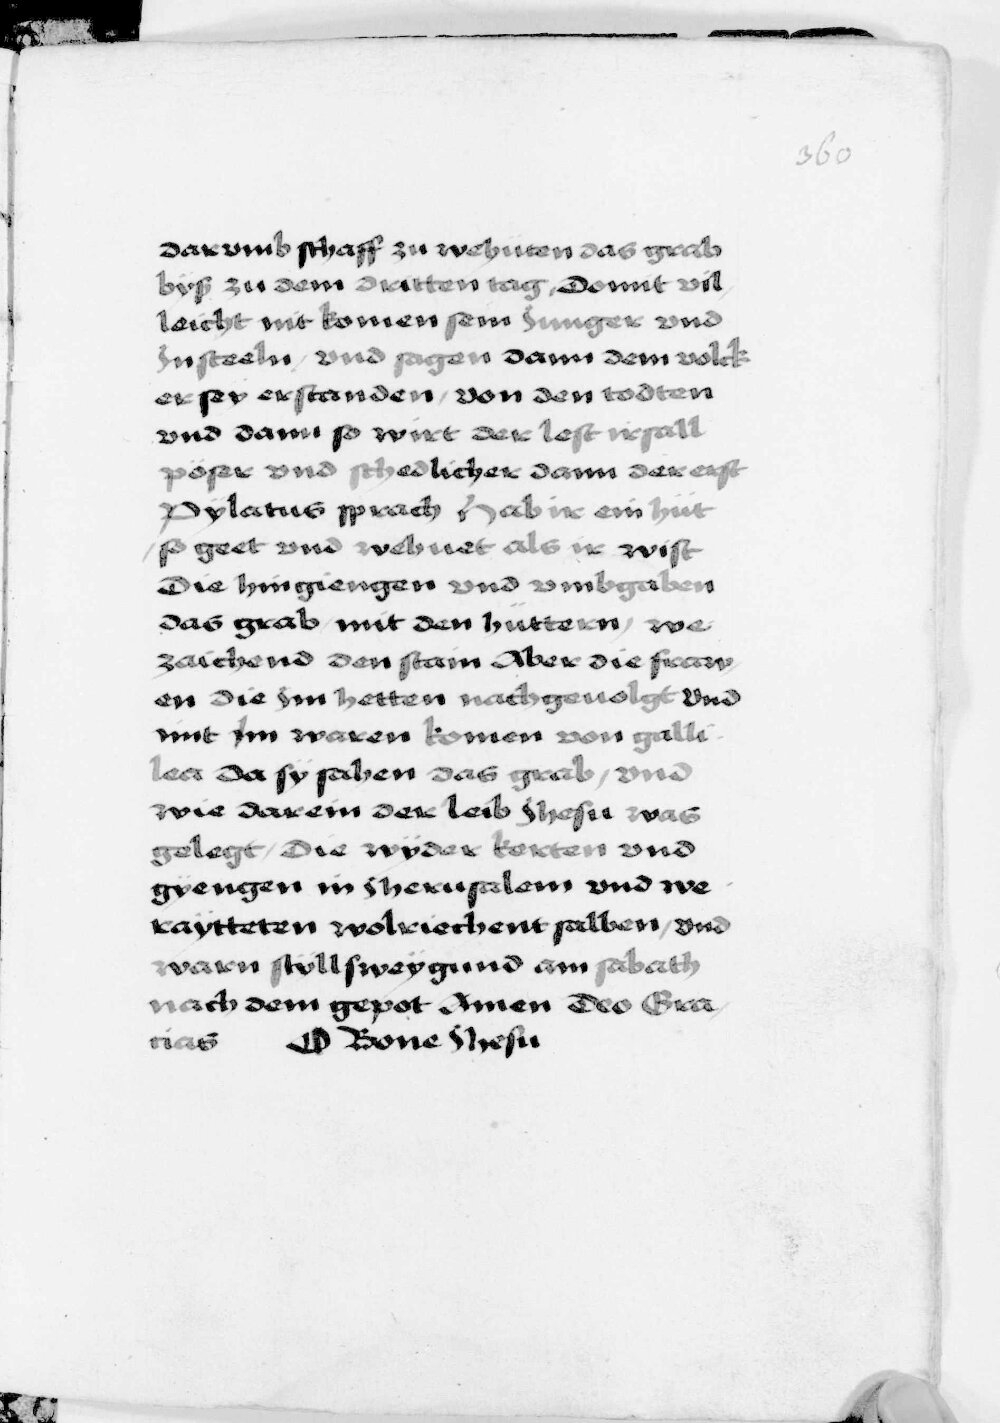 360
darvmb schaff zu wehüten das grab
byß zu dem dritten tag, Domit vil
leicht nit komen sein Junger vnd
Jn steeln / vnd sagen dann dem volck
er sey erstanden / von den todten
vnd dann so wirt der lest irsall
pöser vnd schedlicher dann der erst
Pÿlatus sprach Hab ir ein hüt
/ so geet vnd wehuet als ir wist
Die hingiengen vnd vmbgaben
das grab / mit den hüttern / we
zaichend den stain Aber die fraw
en die Jm hetten nachgeuolgt Vnd
mit Jm waren komen von galli
lea da sÿ sahen das grab / vnd
wie darein der leib Jhesu was
gelegt / Die wÿder kerten vnd
gÿengen in Jherusalem vnd we
raÿtteten wolriechent salben / Vnd
warn stÿllsweÿgund am sabath
nach dem gepot Amen Deo Gra
tias O Bone Jhesu